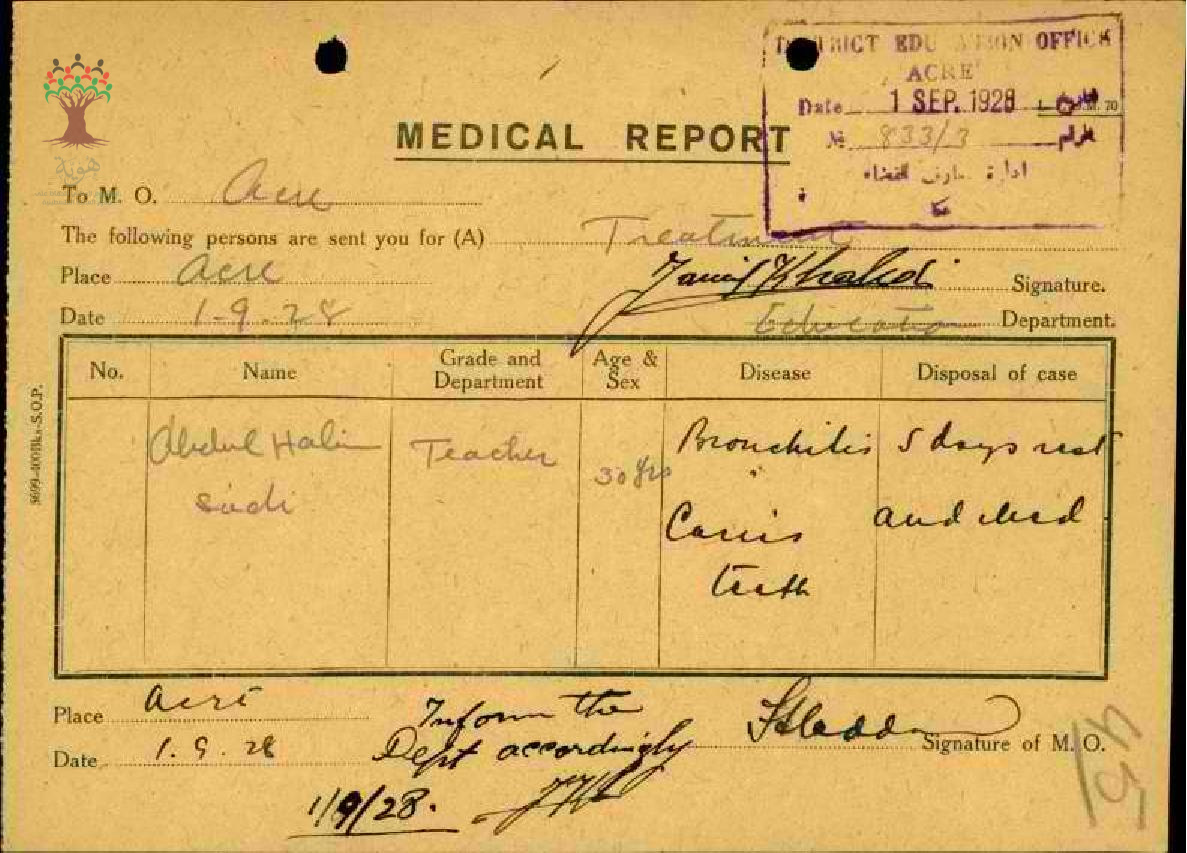 DISTRICT EDUCATION OFFICE
ACRE
Date 1 SEP. 1928 تاريخ
№ 833/3
ادارة معارف القضاء
عكا
هوية
MEDICAL REPORT
To M. O. Acre
The following persons are sent you for (A) Treatment
Place Acre
Jamil Khalidi Signature.
Date 1-9-28
Education Department.
No. Name Grade and Department Age & Sex Disease Disposal of case
Abdul Halim Teacher 30 yrs Bronchitis 5 days rest
Sadi
Caries and med
teeth
3699-400Bks-S.O.P.
Place Acre
Inform the
Dept accordingly
Signature of M. O.
Date 1.9.28
1/9/28.
45